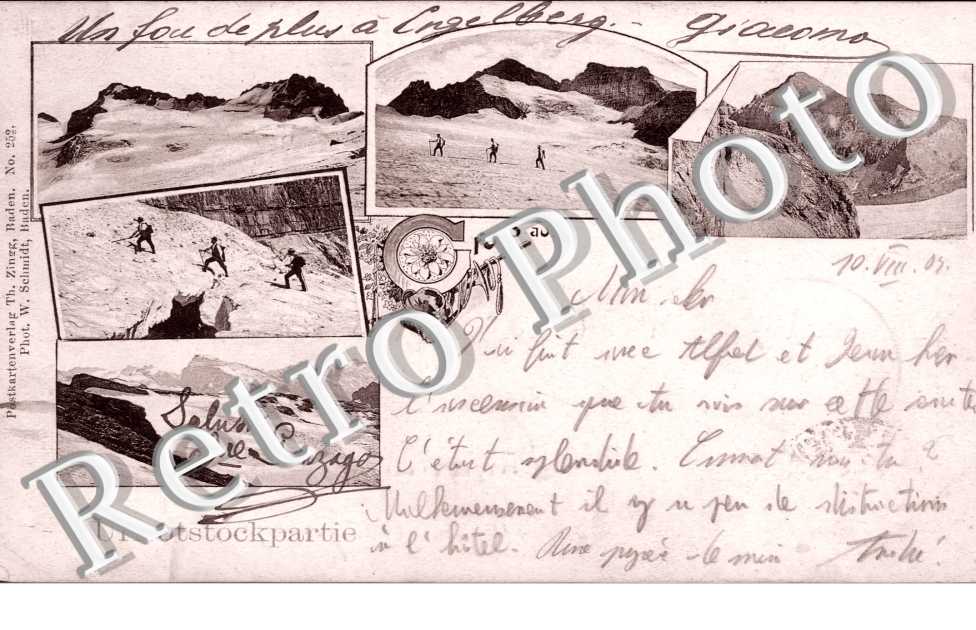 Un fou de plus à Engelberg. - Giacomo
Postkartenverlag Th. Zingg, Baden. No. 252.
Phot. W. Schmidt, Baden.
Gruss aus
10. VIII. 09.
J'ai fait avec Alfred et Jean hier
l'ascension que tu vois sur cette carte
C'était splendide. Comment vas-tu ?
Malheureusement il y a peu de distractions
à l'hôtel. Une poignée de main André.
otstockpartie
Retro Photo